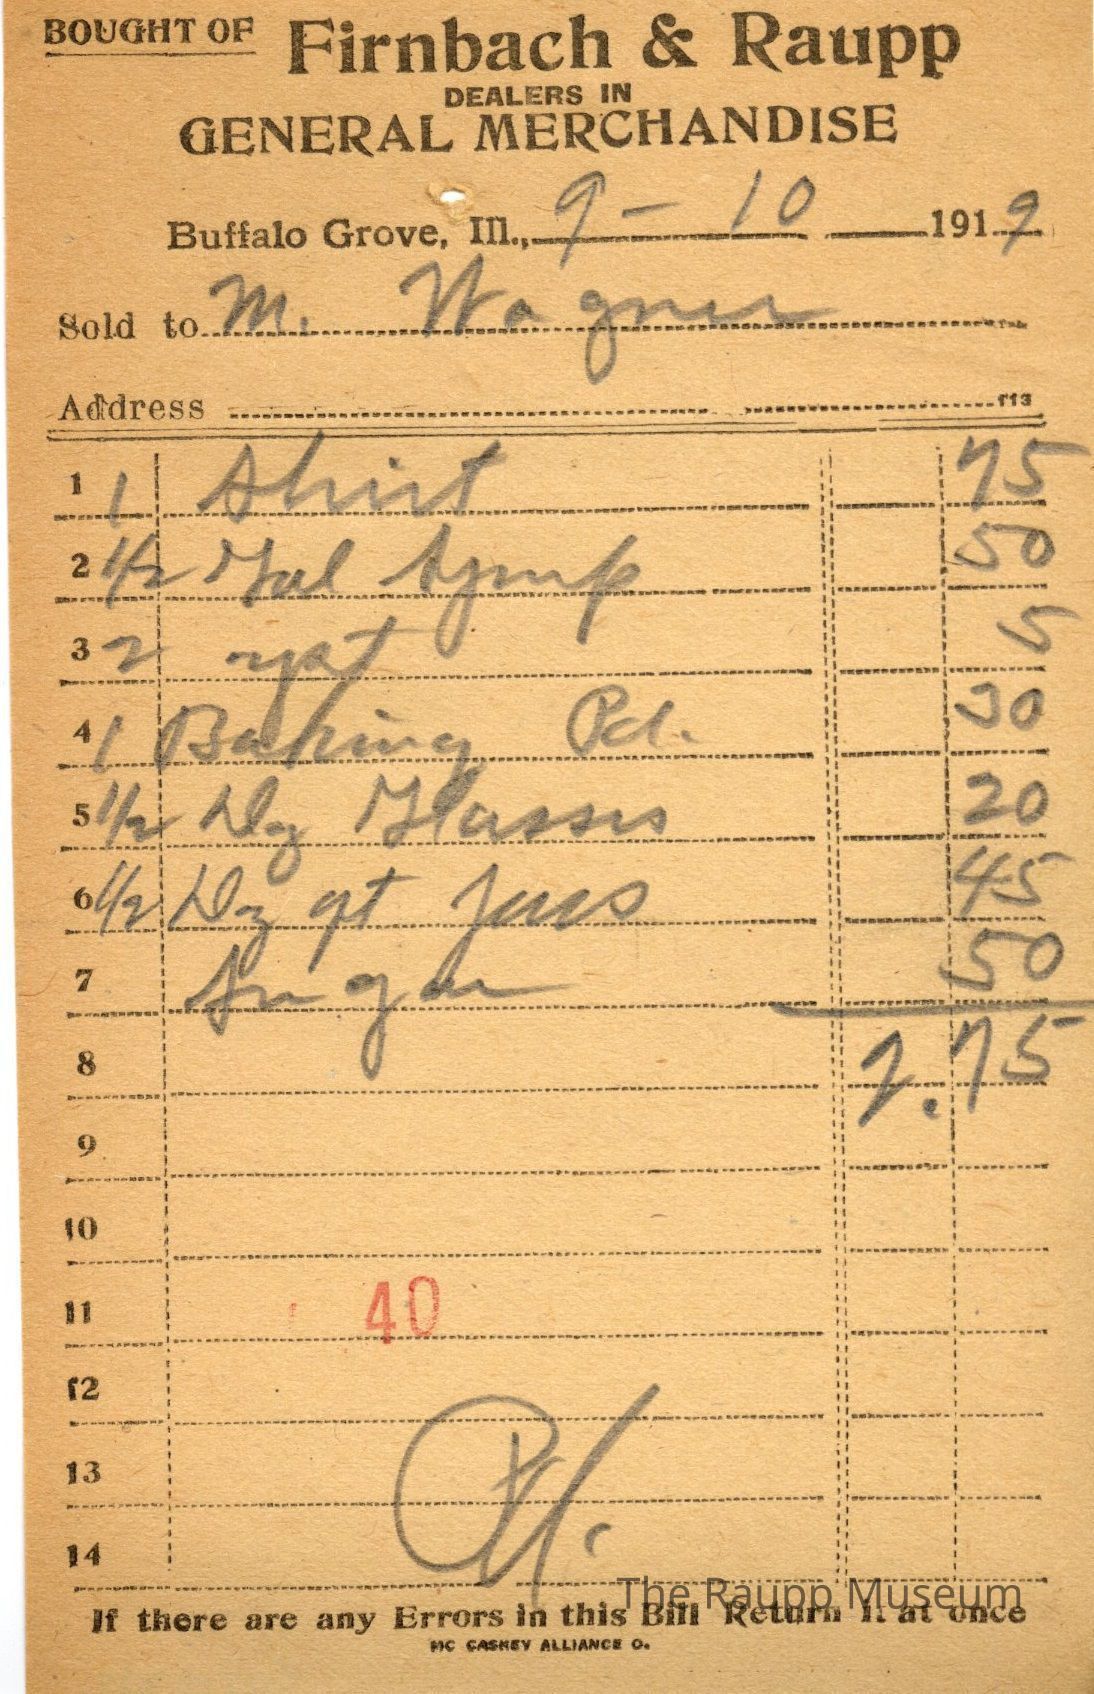 BOUGHT OF Firnbach & Raupp
DEALERS IN
GENERAL MERCHANDISE
Buffalo Grove, Ill., 9 - 10 1919
Sold to M. Wagner
Address
113
1 1 Shirt 75
2 1/2 Gal Syrup 50
3 2 yst 5
4 1 Baking Pd. 30
5 1/2 Dz Glasses 20
6 1/2 Dz qt Jars 45
7 Sugar 50
8 2.75
9
10
11 40
12
13
14
The Raupp Museum
If there are any Errors in this Bill Return it at once
MC CASKEY ALLIANCE O.